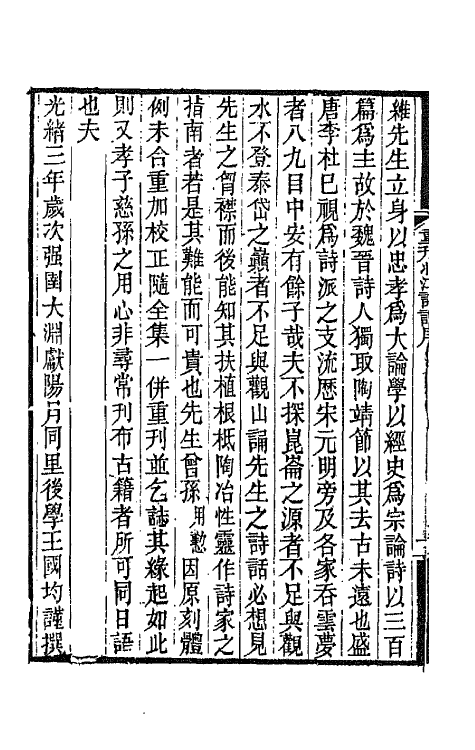 維先生立身以忠孝爲大論學以經史爲宗論詩以三百
篇爲主故於魏晉詩人獨取陶靖節以其去古未遠也盛
唐李杜已視爲詩派之支流歷宋元明旁及各家吞雲夢
者八九目中安有餘子哉夫不探崑崙之源者不足與觀
水不登泰岱之巔者不足與觀山誦先生之詩話必想見
先生之胷襟而後能知其扶植根柢陶冶性靈作詩家之
指南者若是其難能而可貴也先生曾孫用懃因原刻體
例未合重加校正隨全集一併重刊並乞誌其緣起如此
則又孝子慈孫之用心非尋常刊布古籍者所可同日語
也夫
光緒三年歲次强圉大淵獻陽月同里後學王國均謹撰